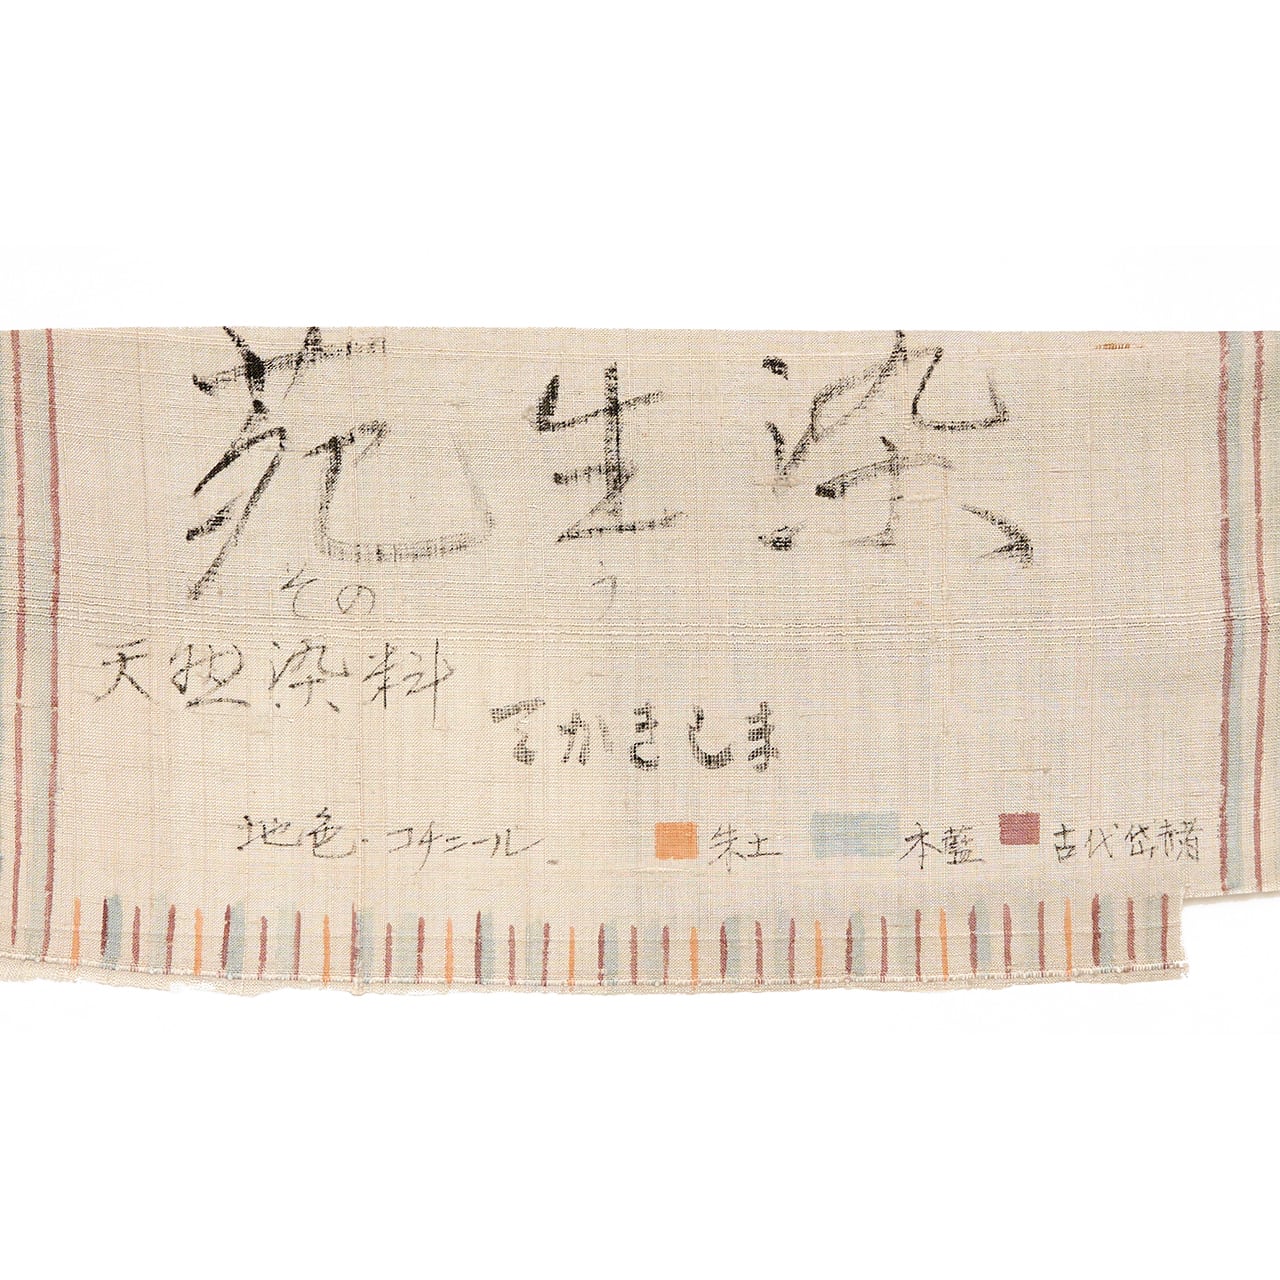 苑生染
その う
天然染料
てがきしま
地色・コチニール 朱土 本藍 古代岱赭